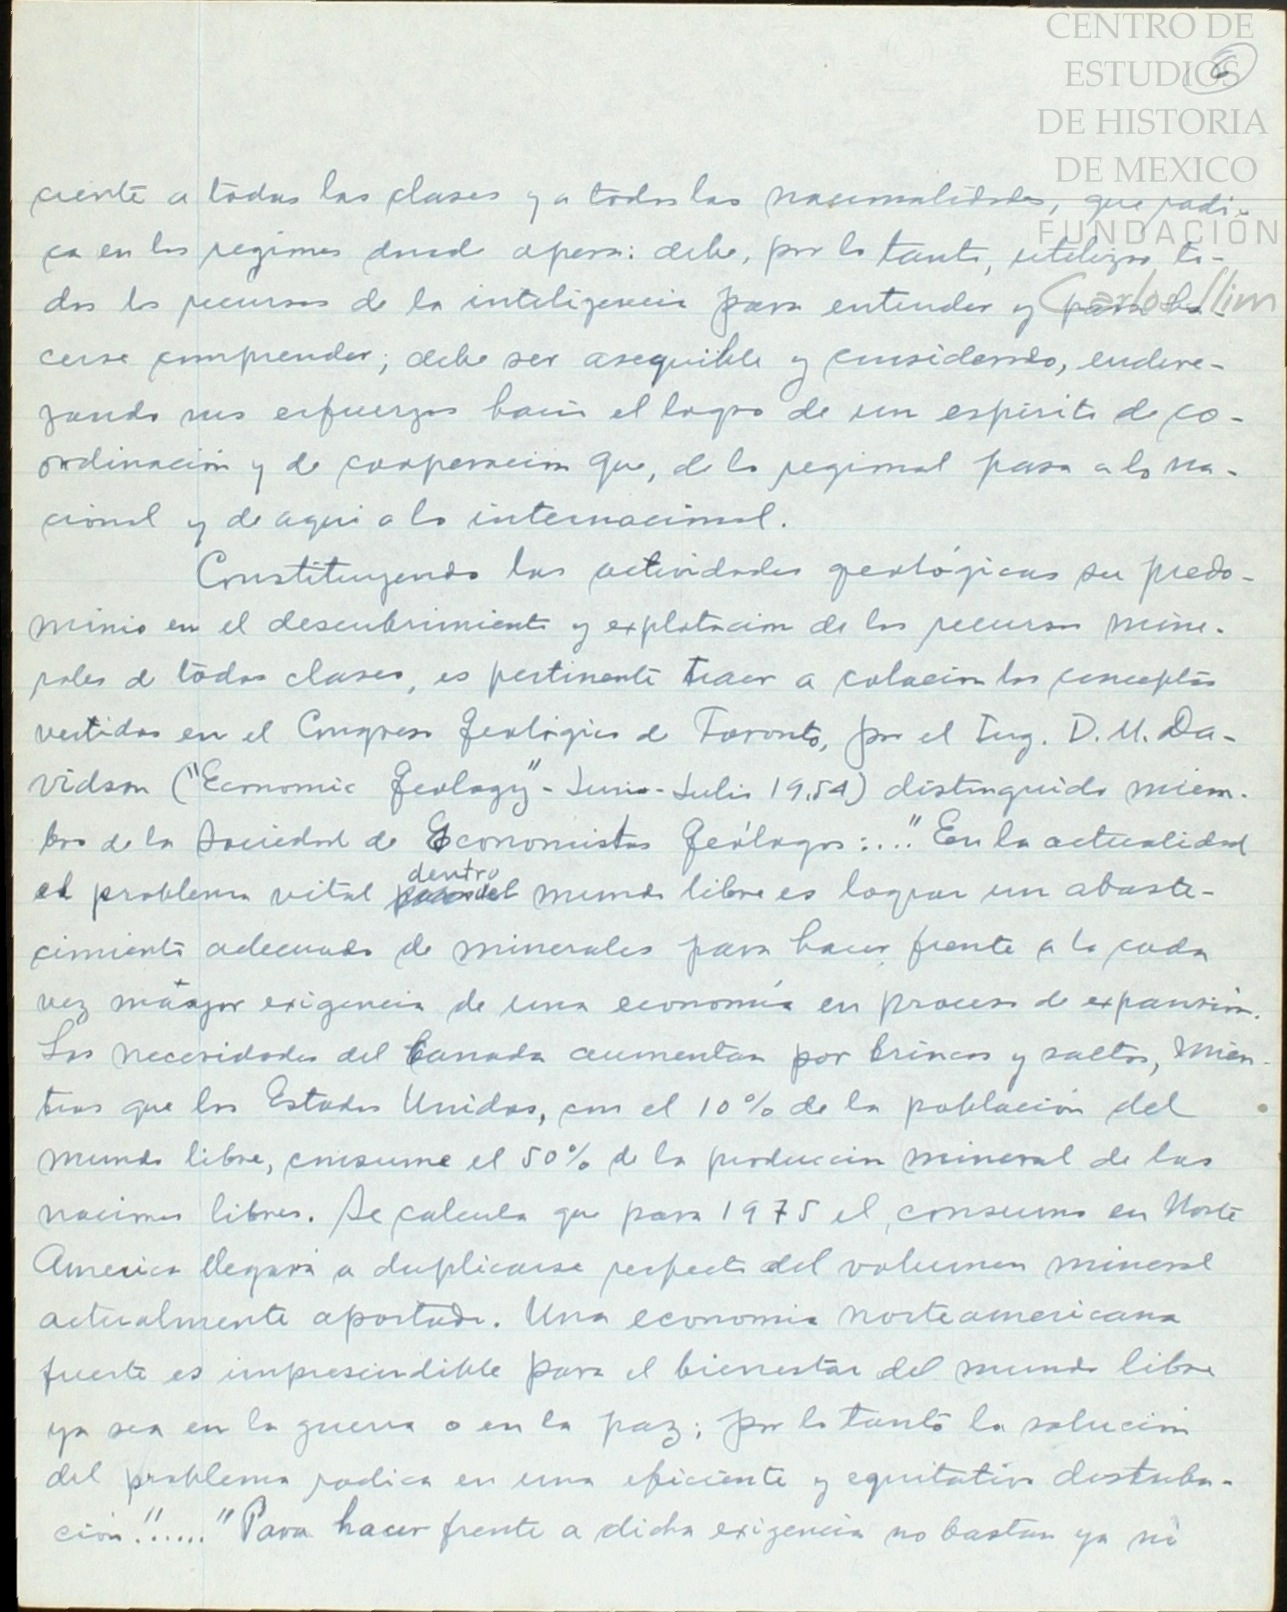 CENTRO DE
ESTUDIOS
DE HISTORIA
DE MEXICO
FUNDACIÓN
Carlos Slim
6
ciente a todas las clases y a todas las nacionalidades, que radi-
ca en los regimenes donde opera: debe, por lo tanto, utilizar to-
dos los recursos de la inteligencia para entender y para ha-
cerse comprender; debe ser asequible y considerado, endere-
zando sus esfuerzos hacia el logro de un espiritu de co-
ordinación y de cooperacion que, de lo regional pasa a lo na-
cional y de aqui a lo internacional.
Constituyendo las actividades geológicas su predo-
minio en el descubrimiento y explotacion de los recursos mine-
rales de todas clases, es pertinente traer a colacion los conceptos
vertidos en el Congreso Geologico de Toronto, por el Ing. D. M. Da-
vidson ("Economic Geology" - Junio-Julio 1954) distinguido miem-
bro de la Sociedad de Economistas Geólogos:..." En la actualidad
el problema vital dentro del mundo libre es lograr un abaste-
cimiento adecuado de minerales para hacer frente a la cada
vez mayor exigencia de una economía en proceso de expansión.
Las necesidades del Canada aumentan por brincos y saltos, mien-
tras que los Estados Unidos, con el 10% de la población del
mundo libre, consume el 50% de la produccion mineral de las
naciones libres. Se calcula que para 1975 el consumo en Norte
America llegará a duplicarse respecto del volumen mineral
actualmente aportado. Una economia norteamericana
fuerte es imprescindible para el bienestar del mundo libre
ya sea en la guerra o en la paz; por lo tanto la solución
del problema radica en una eficiente y equitativa distribu-
ción."....." Para hacer frente a dicha exigencia no bastan ya ni